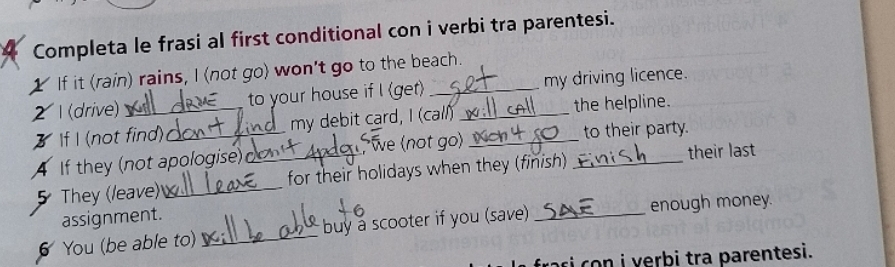 4 Completa le frasi al first conditional con i verbi tra parentesi.
1 If it (rain) rains, I (not go) won't go to the beach.
2 I (drive) will drive to your house if I (get) get my driving licence.
3 If I (not find) don't find my debit card, I (call) will call the helpline.
4 If they (not apologise) don't apologise, we (not go) won't go to their party.
5 They (leave) will leave for their holidays when they (finish) finish their last
assignment.
6 You (be able to) will be able to buy a scooter if you (save) save enough money.
frasi con i verbi tra parentesi.